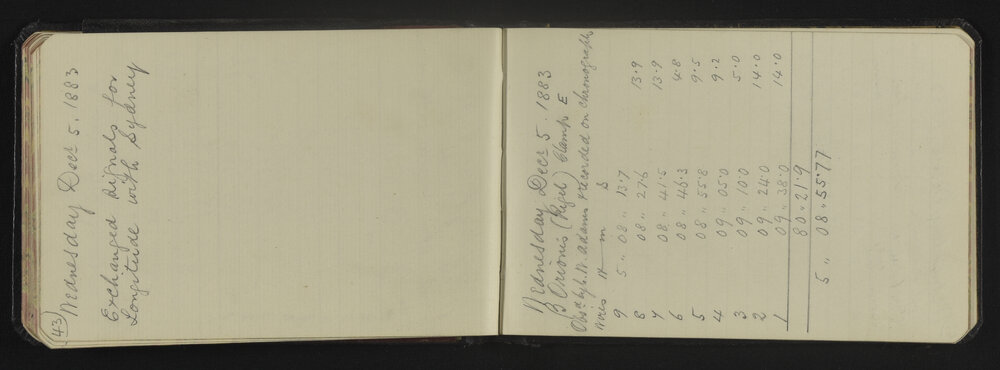 43
Wednesday Decr 5. 1883
Exchanged signals for
Longitude with Sydney
Wednesday Decr 5. 1883
B Orionis (Rigel) Clamp E
Obsd by C. W. Adams & recorded on chronograph
Wires H m s
9 5 " 08 " 13.7
8 08 " 27.6 13.9
7 08 " 41.5 13.9
6 08 " 46.3 4.8
5 08 " 55.8 9.5
4 09 " 05.0 9.2
3 09 " 10.0 5.0
2 09 " 24.0 14.0
1 09 " 38.0 14.0
80 " 21.9
5 " 08 " 55.77